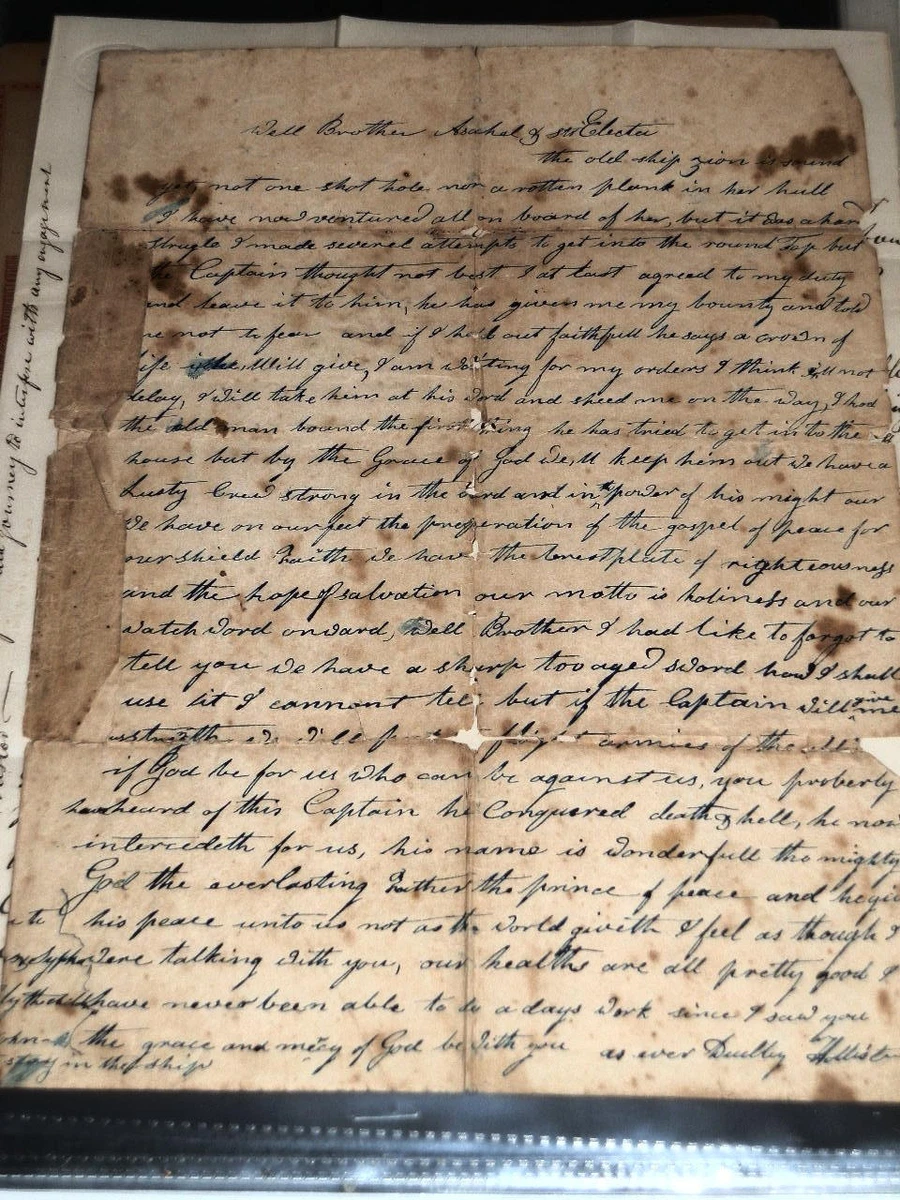 Well Brother Asahel & str Electa
the old ship zion is sound
yet, not one shot hole nor a rotten plank in her hull
I have now ventured all on board of her, but it was a hard
strugle I made severel attempts to get into the round Top but
the Captain thought not best I at last agreed to my duty
and leave it to him, he has given me my bounty and told
me not to fear and if I hold out faithfull he says a crown of
life he Will give, I am waiting for my orders I think will not
delay, I will take him at his word and speed me on the way, I had
the old man bound the first thing he has tried to get into the
house but by the Grace of God we,ll keep him out we have a
Lusty Crew strong in the Lord and in the power of his might our
We have on our feet the preperation of the gospel of peace for
our shield Faith we have the brestplate of righteousness
and the hope of salvation our motto is holiness and our
watch word onward, Well Brother I had like to forgot to
tell you we have a sharp too aged sword how I shall
use it I cannont tel but if the Captain will give me
armies of the
if God be for us who can be against us, you properly
have heard of this Captain he Conquered death & hell, he now
intercedeth for us, his name is wonderfull the mighty
God the everlasting Father the prince of peace and he giv
his peace unto us not as the world giveth I feel as though I
were talking with you, our healths are all pretty good I
have never been able to do a days work since I saw you
the grace and mercy of God be with you as ever Dudley Hollister
stay in the ship
journey to interfere with any engagement